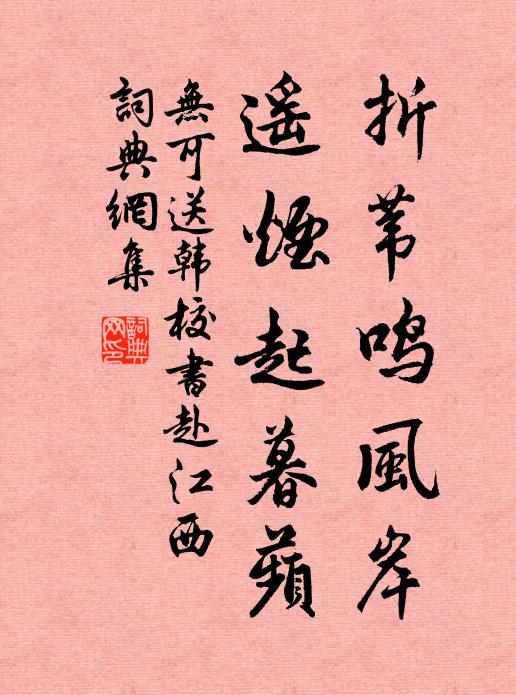 折苇鸣風岸
遥煙起暮蘋
無可送韩校書赴江西
詞典網集
詞典網印